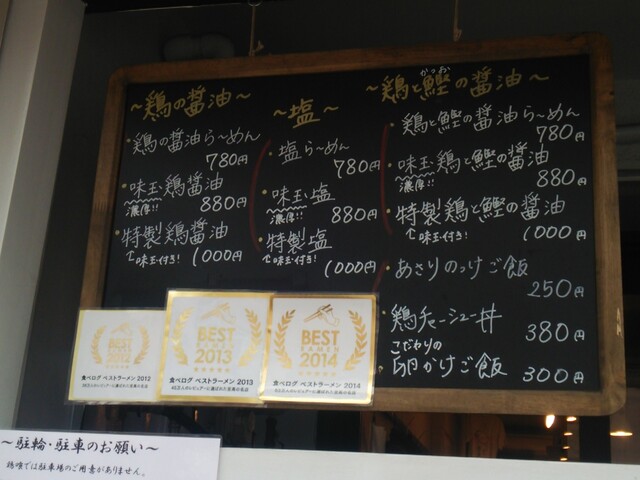 ～鶏の醤油～
・鶏の醤油らーめん
780円
・味玉鶏醤油
濃厚!! 880円
・特製鶏醤油
↑味玉付き! 1000円
～塩～
・塩らーめん
780円
・味玉塩
濃厚!! 880円
・特製塩
↑味玉付き!
1000円
かつお
～鶏と鰹の醤油～
・鶏と鰹の醤油らーめん
780円
・味玉鶏と鰹の醤油
濃厚!! 880円
・特製鶏と鰹の醤油
↑味玉付き! 1000円
・あさりのっけご飯
250円
・鶏チャーシュー丼
380円
こだわりの
・卵かけご飯 300円
BEST
RAMEN
2012
食べログ ベストラーメン 2012
BEST
RAMEN
2013
食べログ ベストラーメン 2013
BEST
RAMEN
2014
食べログ ベストラーメン 2014
～駐輪・駐車のお願い～
鶏喰では駐車場のご用意がありません。